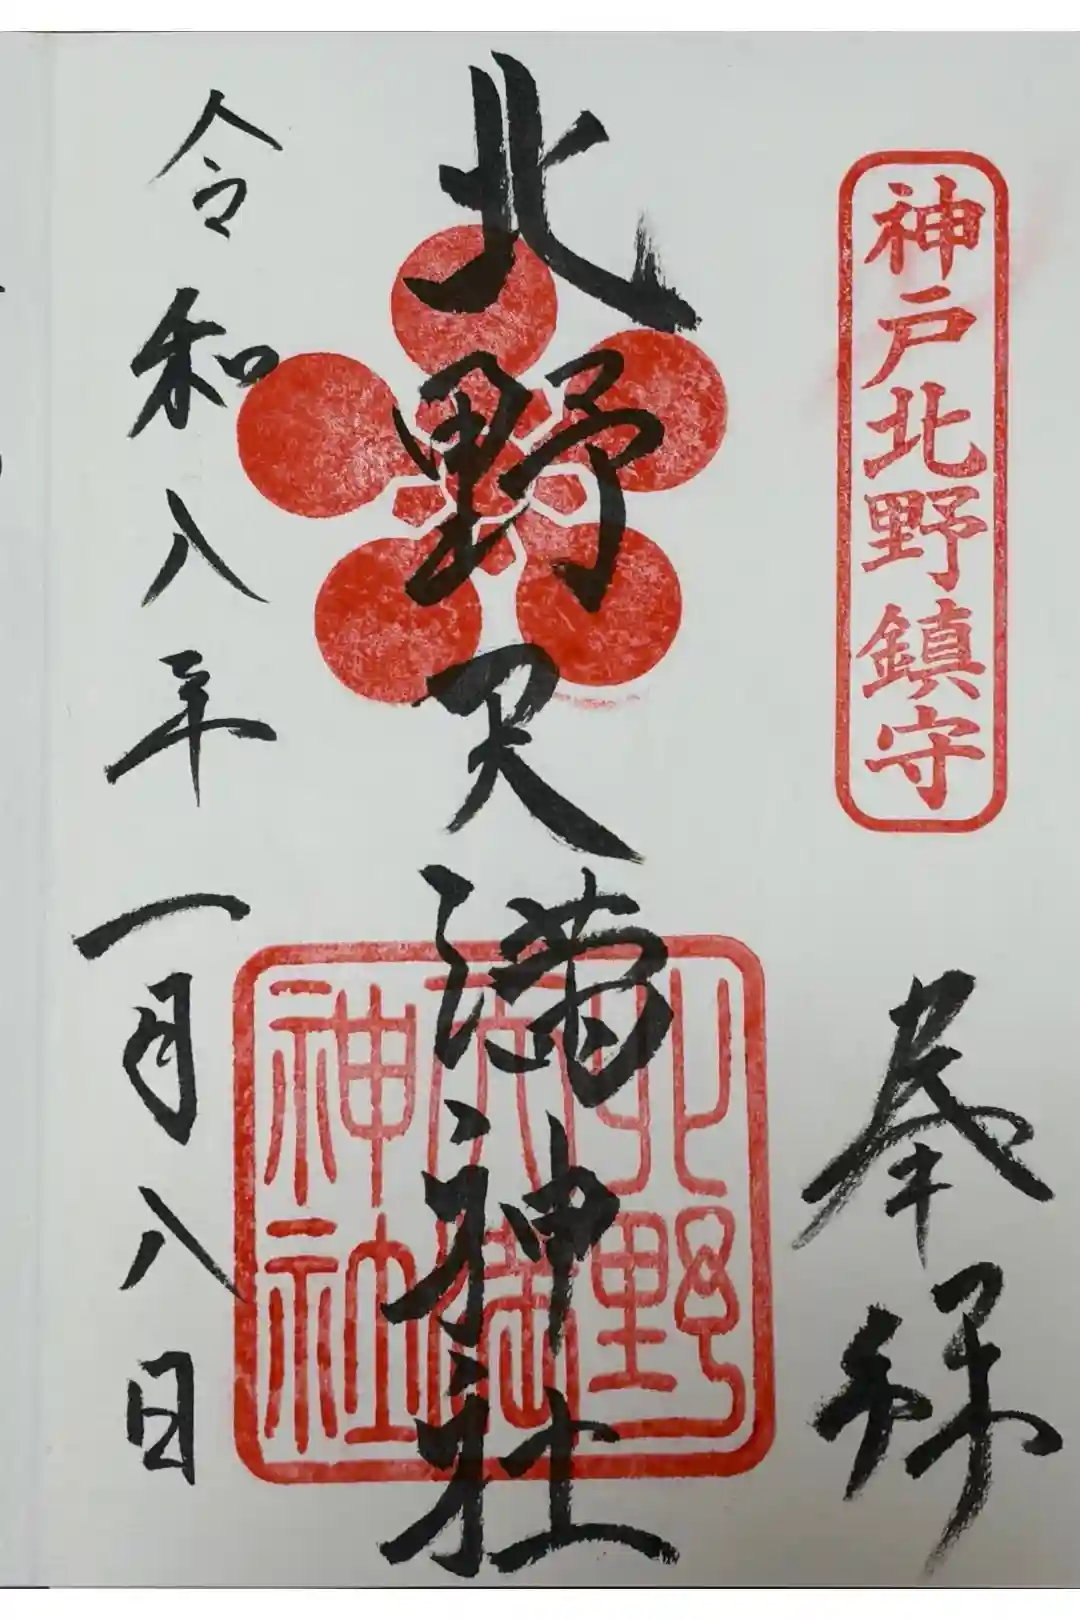 神戸北野鎮守
奉拝
北野天満神社
北野天満神社
令和八年一月八日